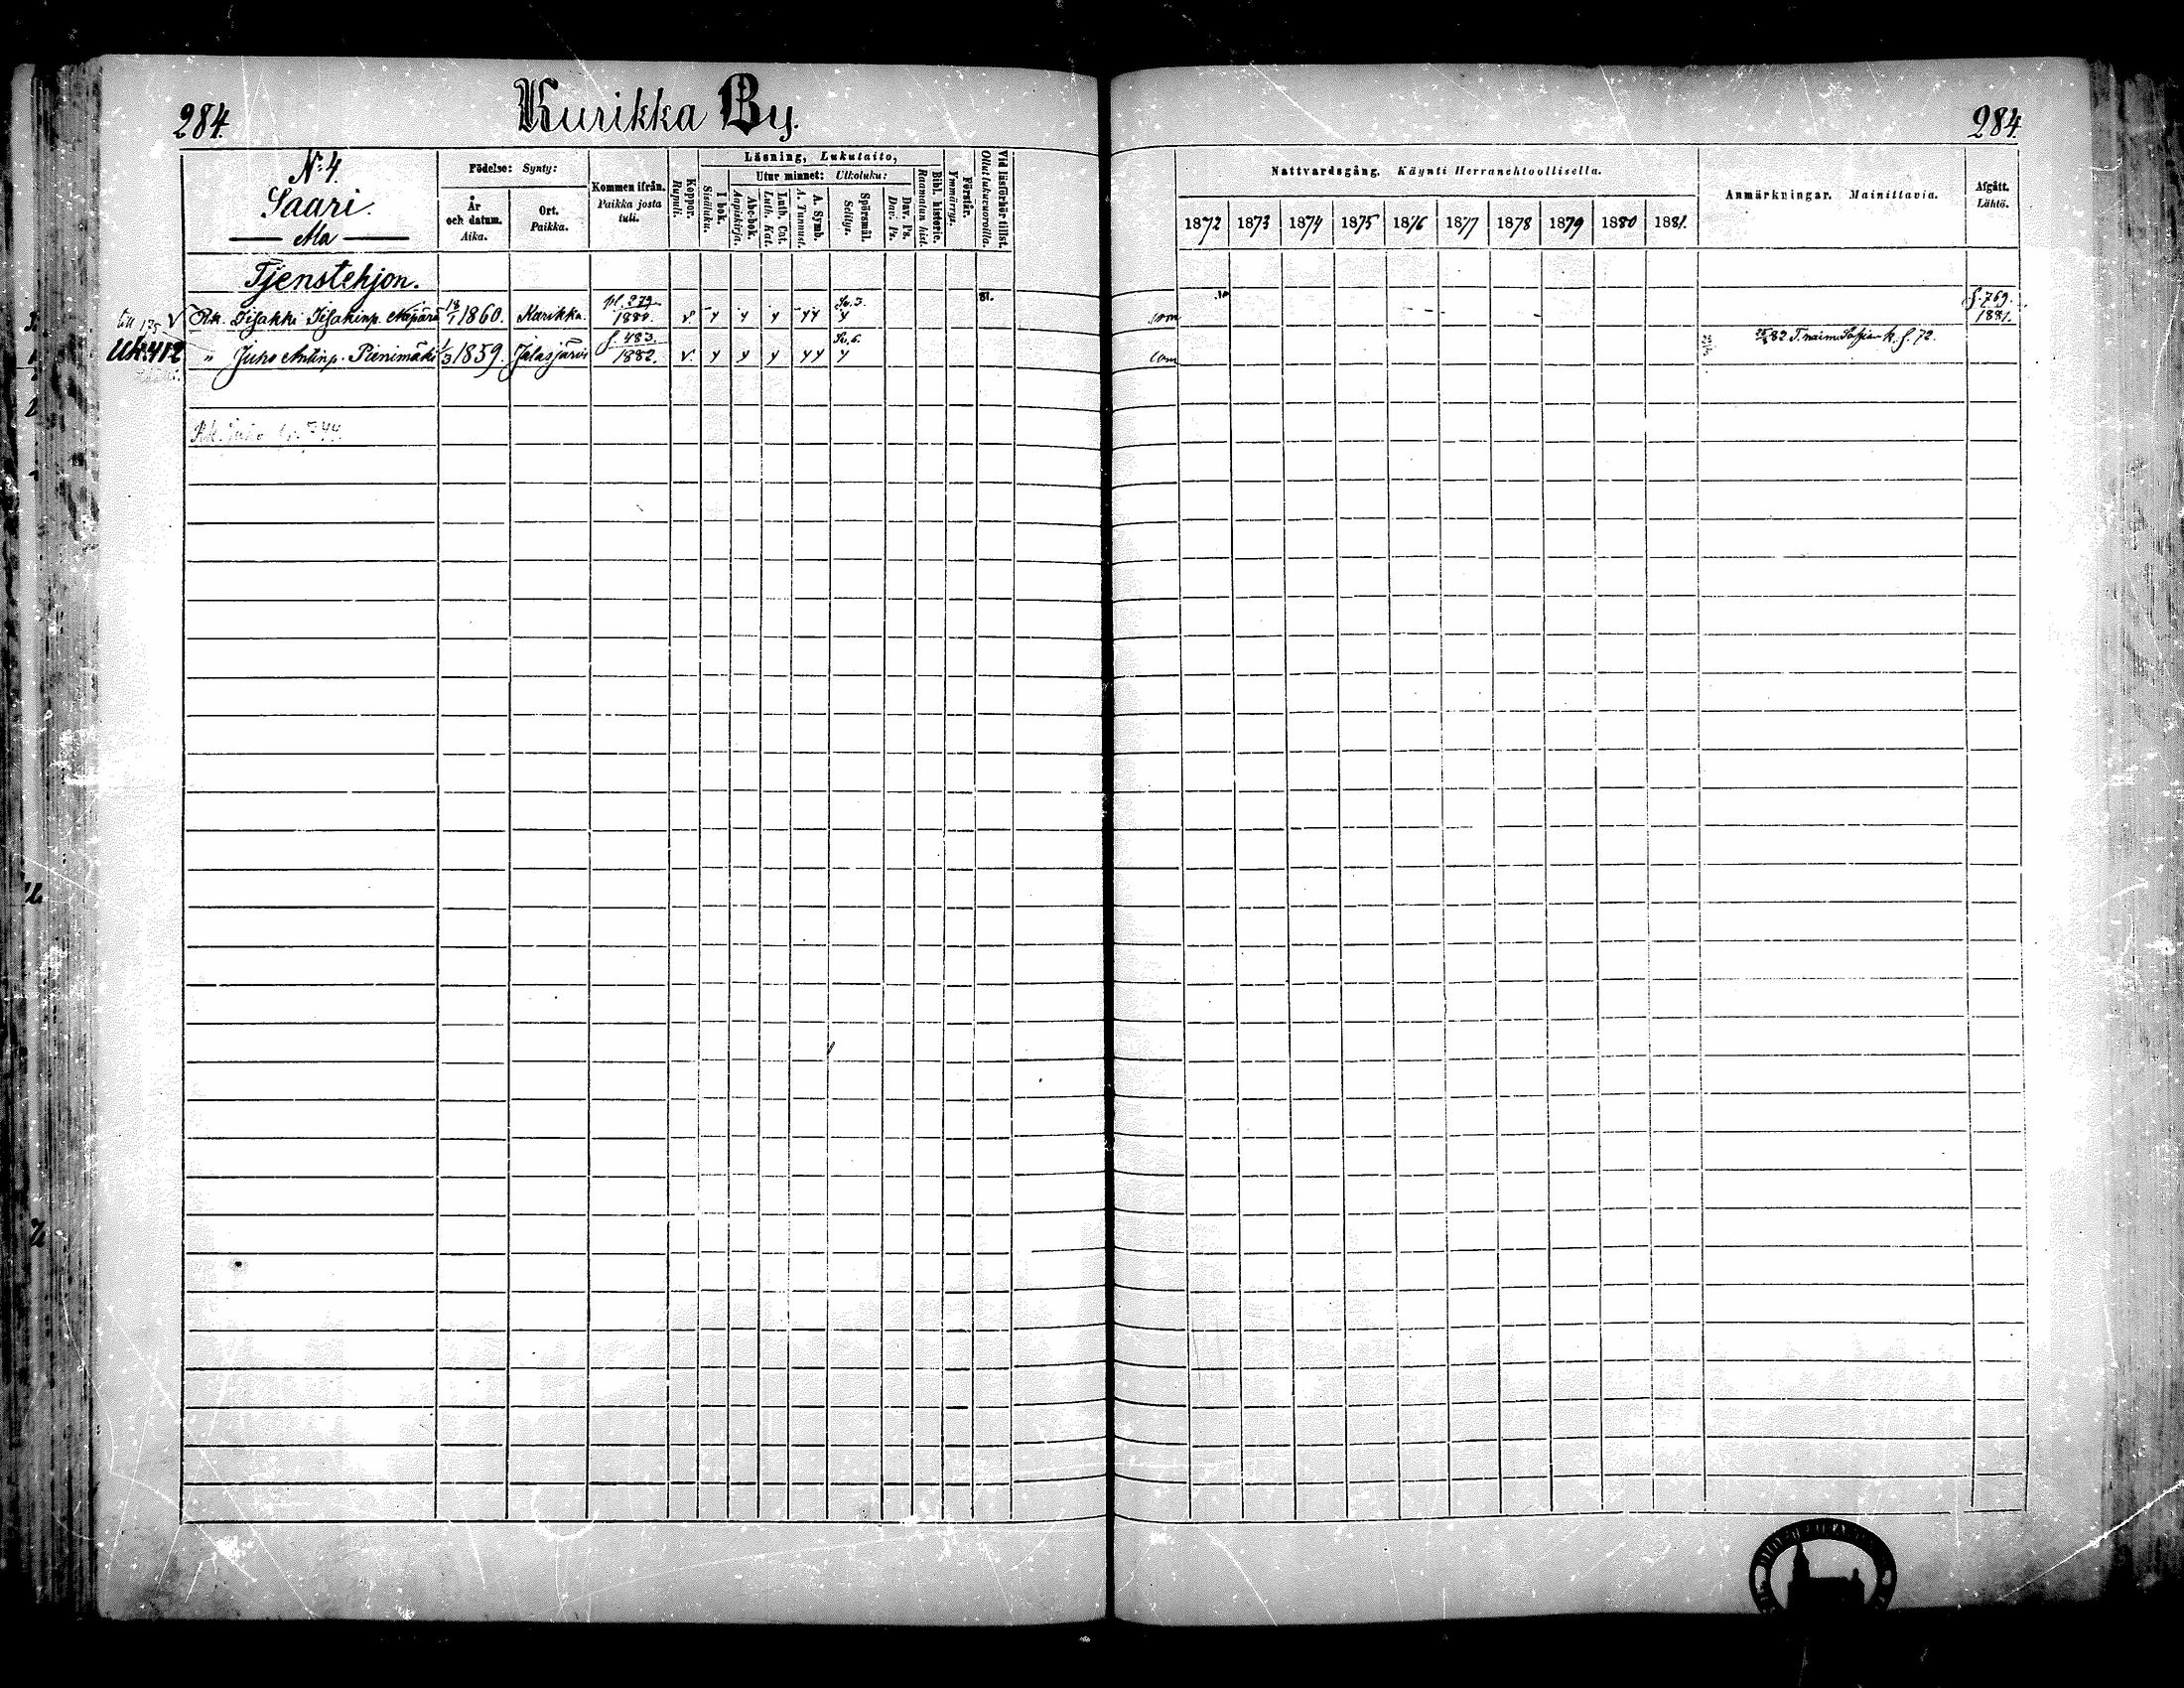 284.
Kurikka By.
284.
No 4.
Saari.
Ala
Födelse: Synty:
År och datum. Aika.
Ort. Paikka.
Kommen ifrån. Paikka josta tuli.
Koppor. Rupuli.
Läsning, Lukutaito,
I bok. Sisäluku.
Utur minnet: Ulkoluku:
Abc-bok. Aapiskirja.
Luth. Cat. Luth. Kat.
A. Symb. A. Tunnust.
Spörsmål. Selitys.
Dav. Ps. Dav. Ps.
Bibl. historie. Raamatun hist.
Förstår. Ymmärrys.
Vid läsförhör tillst. Ollut lukuvuoroilla.
Nattvardsgång. Käynti Herranehtoollisella.
1872 1873 1874 1875 1876 1877 1878 1879 1880 1881.
Anmärkningar. Mainittavia.
Afgått. Lähtö.
Tjenstehjon.
till 175 V Rk. Iisakki Iisakinp. 18/1 1860. Kurikka. pl. 279. 1880. v. y y y yy Sv. 3. y 81. com f. 769. 1881.
Utk. 412 " Juho Antinp. Pienimäki 1/3 1859. Jalasjärvi f. 483. 1882. v. y y y yy Sv. 6. y com 82. T. naim. k. f. 72.
Rk. Juho